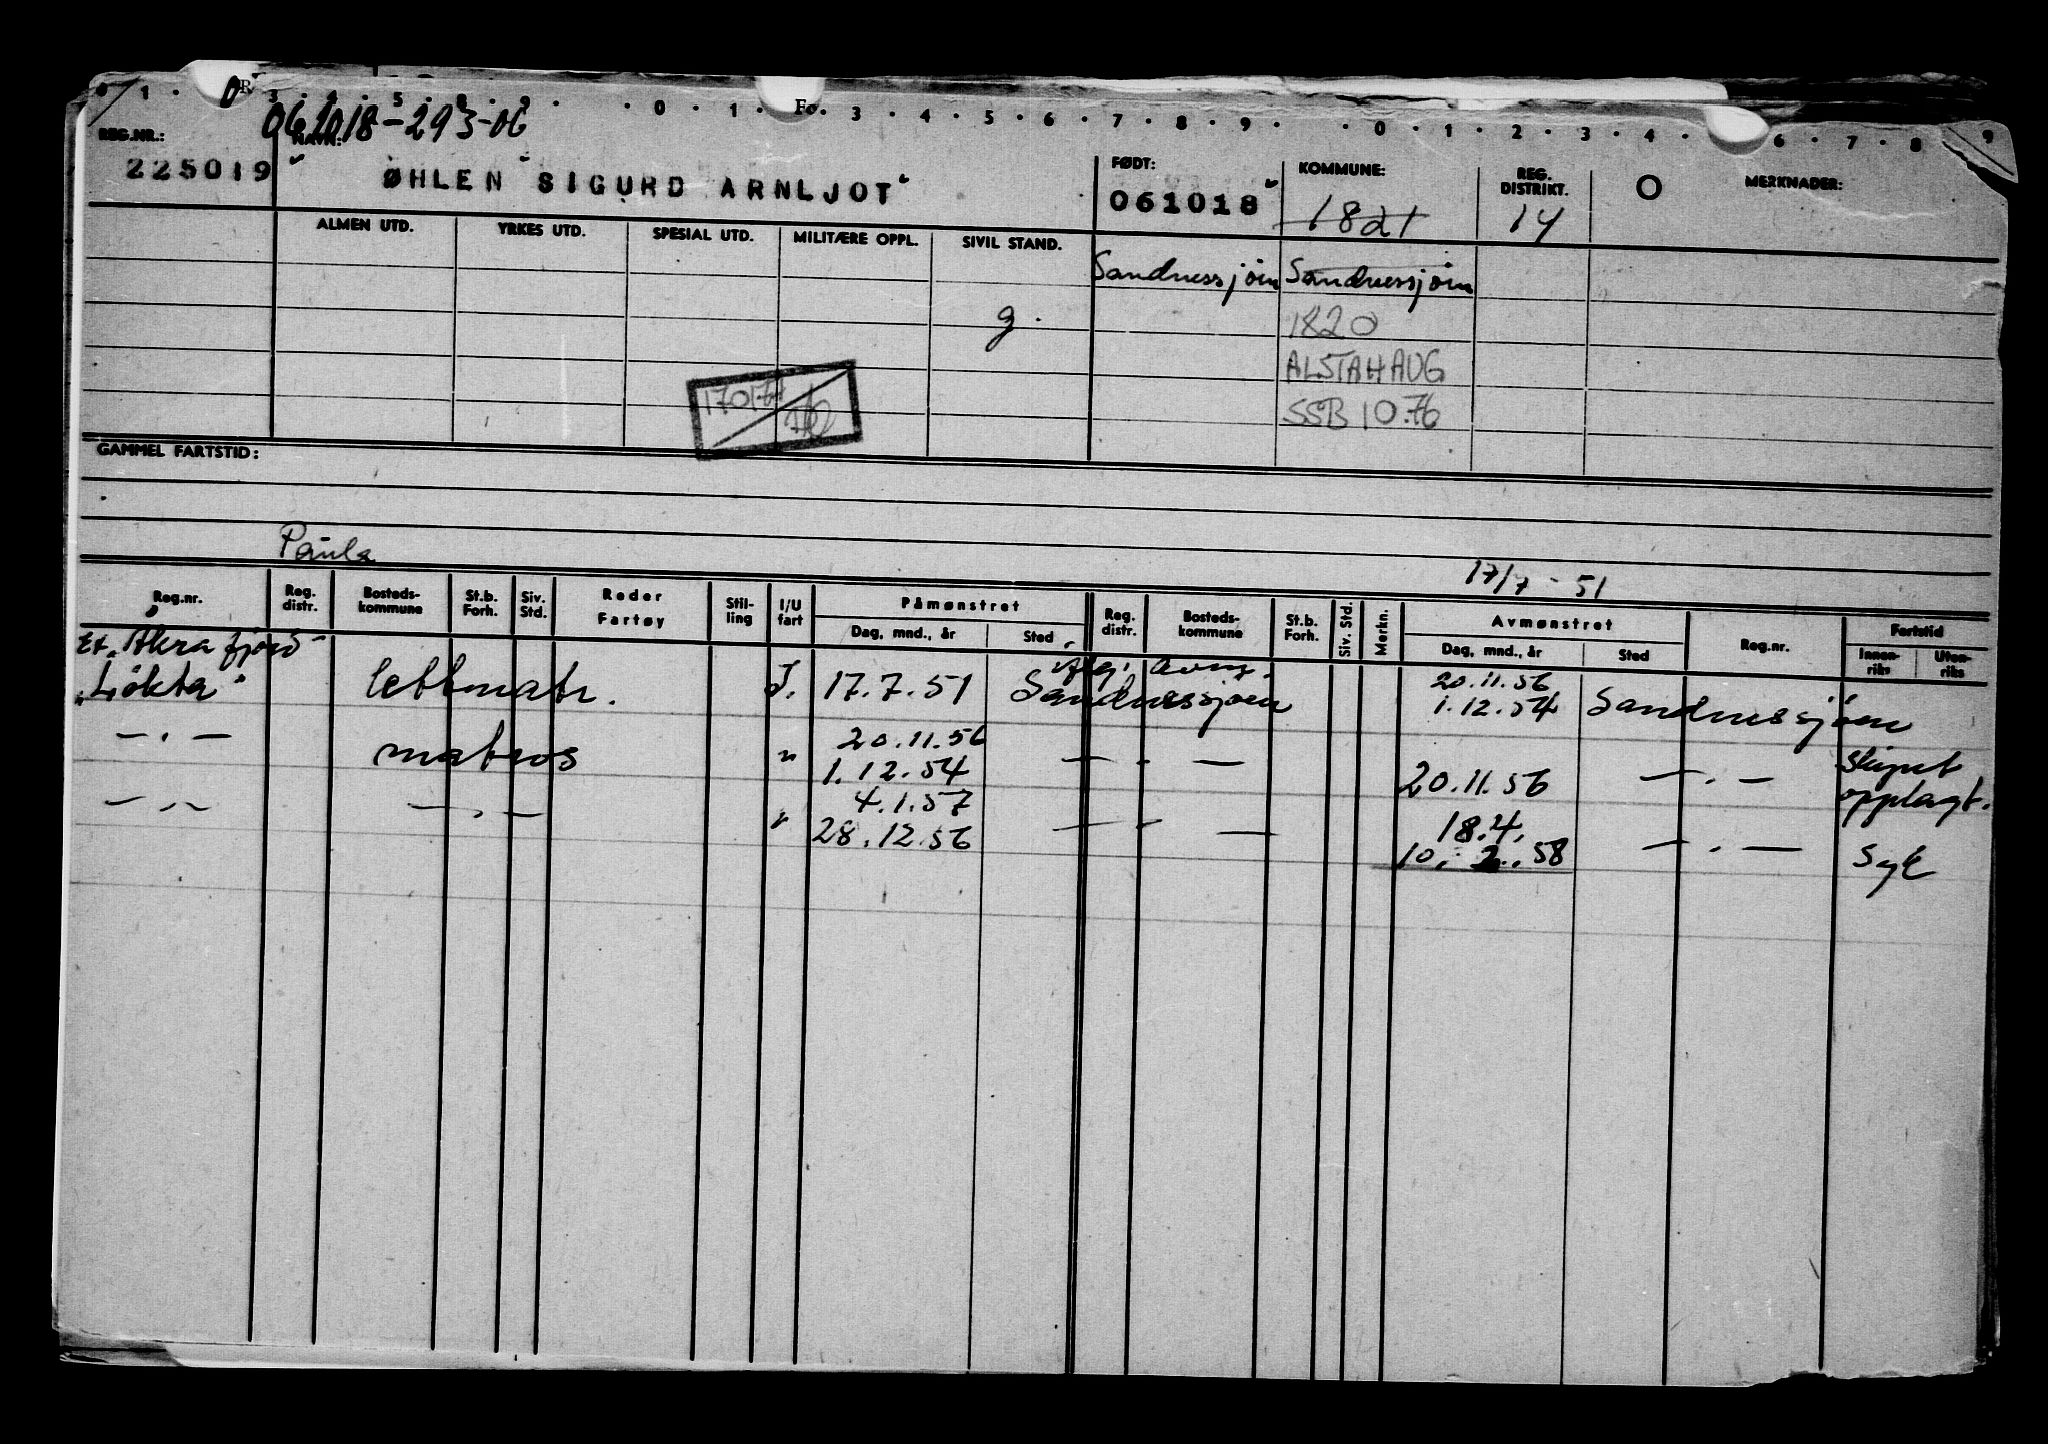 061018-293-06
REG.NR.: NAVN: FØDT: KOMMUNE: REG. DISTRIKT. O MERKNADER:
225019 ØHLEN SIGURD ARNLJOT 061018 1821 14
ALMEN UTD. YRKES UTD. SPESIAL UTD. MILITÆRE OPPL. SIVIL STAND.
Sandnessjøen Sandnessjøen
g. 1820
ALSTAHAUG
SSB 10.76
GAMMEL FARTSTID:
Paula
17/7 - 51
Reg.nr. Reg. distr. Bosteds-kommune St.b. Forh. Siv. Std. Reder Fartøy Stil-ling I/U fart Påmønstret Reg. distr. Bosteds-kommune St.b. Forh. Siv. Std. Merkn. Avmønstret Reg.nr. Fartstid
Dag, mnd., år Sted Dag, mnd., år Sted Innen-riks Uten-riks
Ex. Akrafjord
20.11.56
"Løkta" lettmatr. I. 17.7.51 Sandnessjøen 1.12.54 Sandnessjøen
— . — 20.11.56
matros " 1.12.54 — . — 20.11.56 — . — Skipet opplagt.
— " — — . — 4.1.57 18.4.
" 28.12.56 — . — 10. 2. 58 — . — Syk